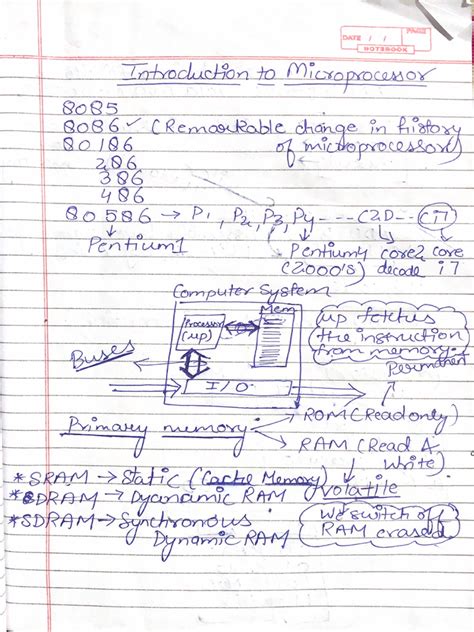 DATE / /
PAGE
NOTEBOOK
Introduction to Microprocessor
8085
8086 ✓ (Remarkable change in history
80186 of microprocessor)
286
386
486
80586 → P1, P2, P3, P4 --- C2D -- Ci7
Pentium1 Pentium4 core2 core
(2000's) decade i7
Computer System
Mem
Processor
(up)
Buses
I/O
up fetches
the instruction
from memory.
Permanent
Primary memory: ROM (Read only)
RAM (Read &
Write)
*SRAM → Static (Cache Memory) volatile
*DRAM → Dycnamic RAM
*SDRAM → Synchronous
Dynamic RAM
We switch off
RAM erased